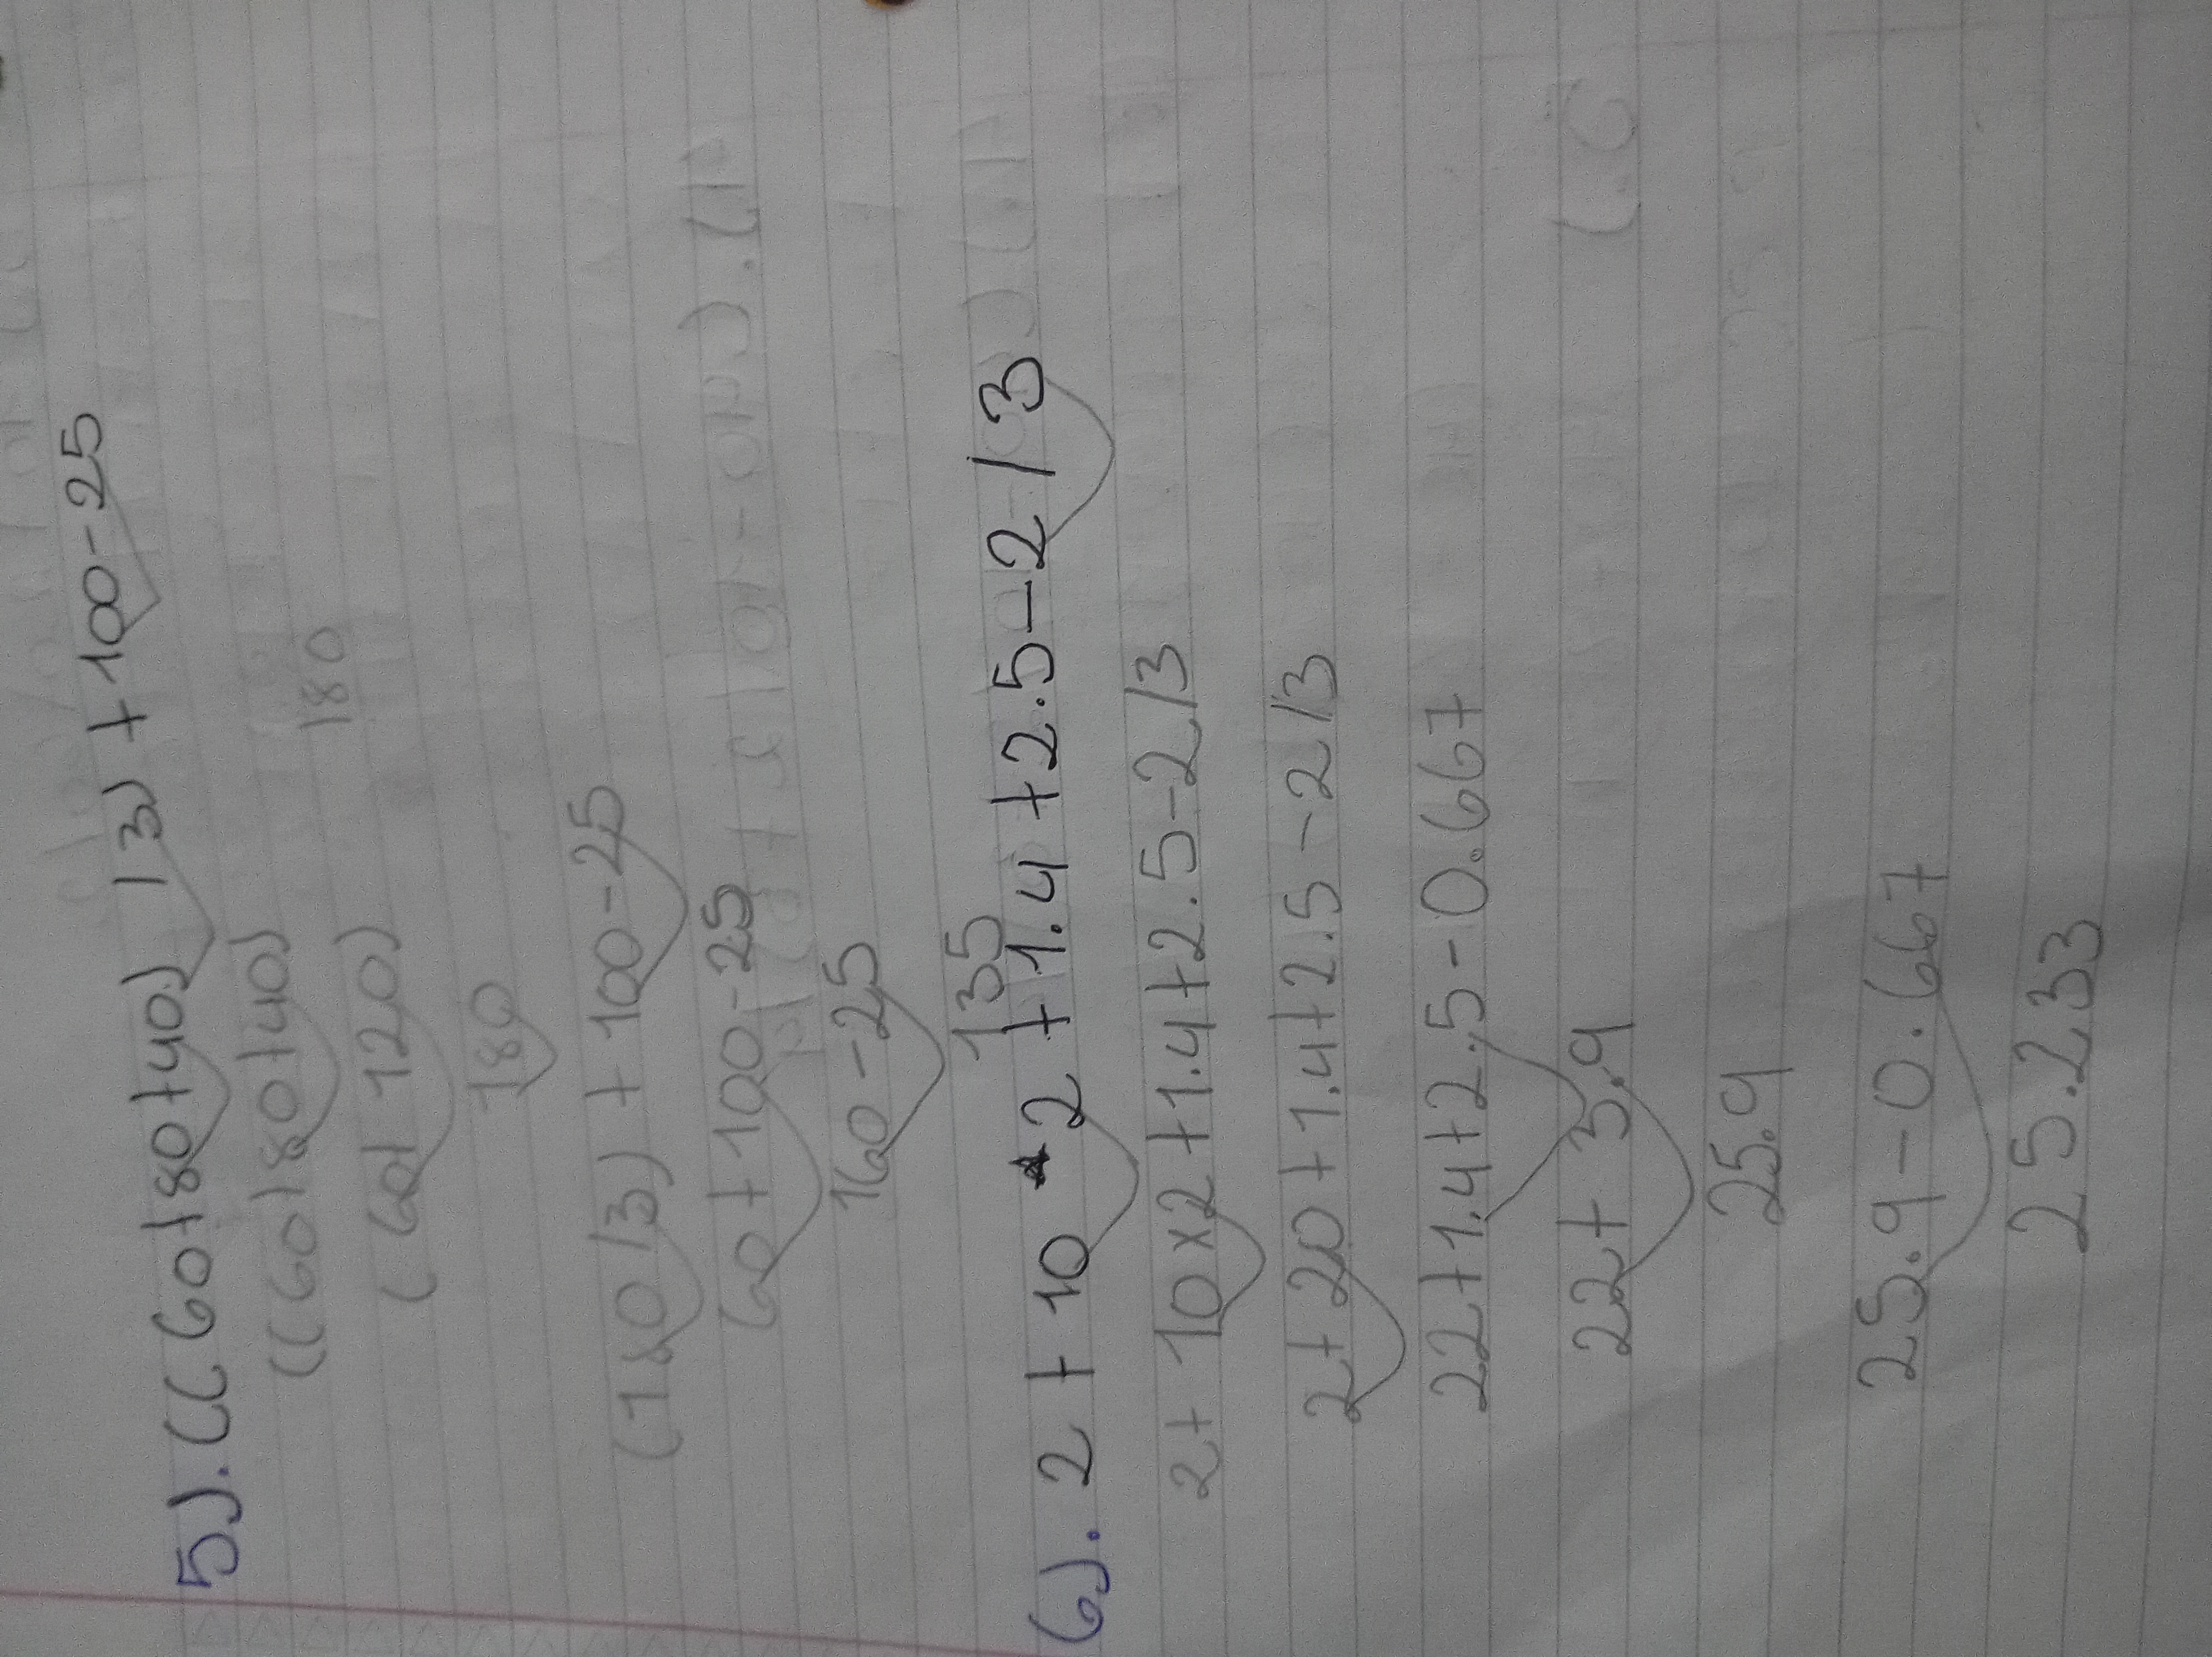 5). ((60+80+40) /3) +100-25
((60+80+40)
180
(60+120)
180
(180/3) +100-25
60+100-25
160-25
135
6). 2 + 10 * 2 +1.4 +2.5-2 /3
2+ 10x2+1.4+2.5-2/3
2+20+1.4+2.5-2/3
22+1.4+2.5-0.667
22+ 3.9
25.9
25.9-0.667
25.233